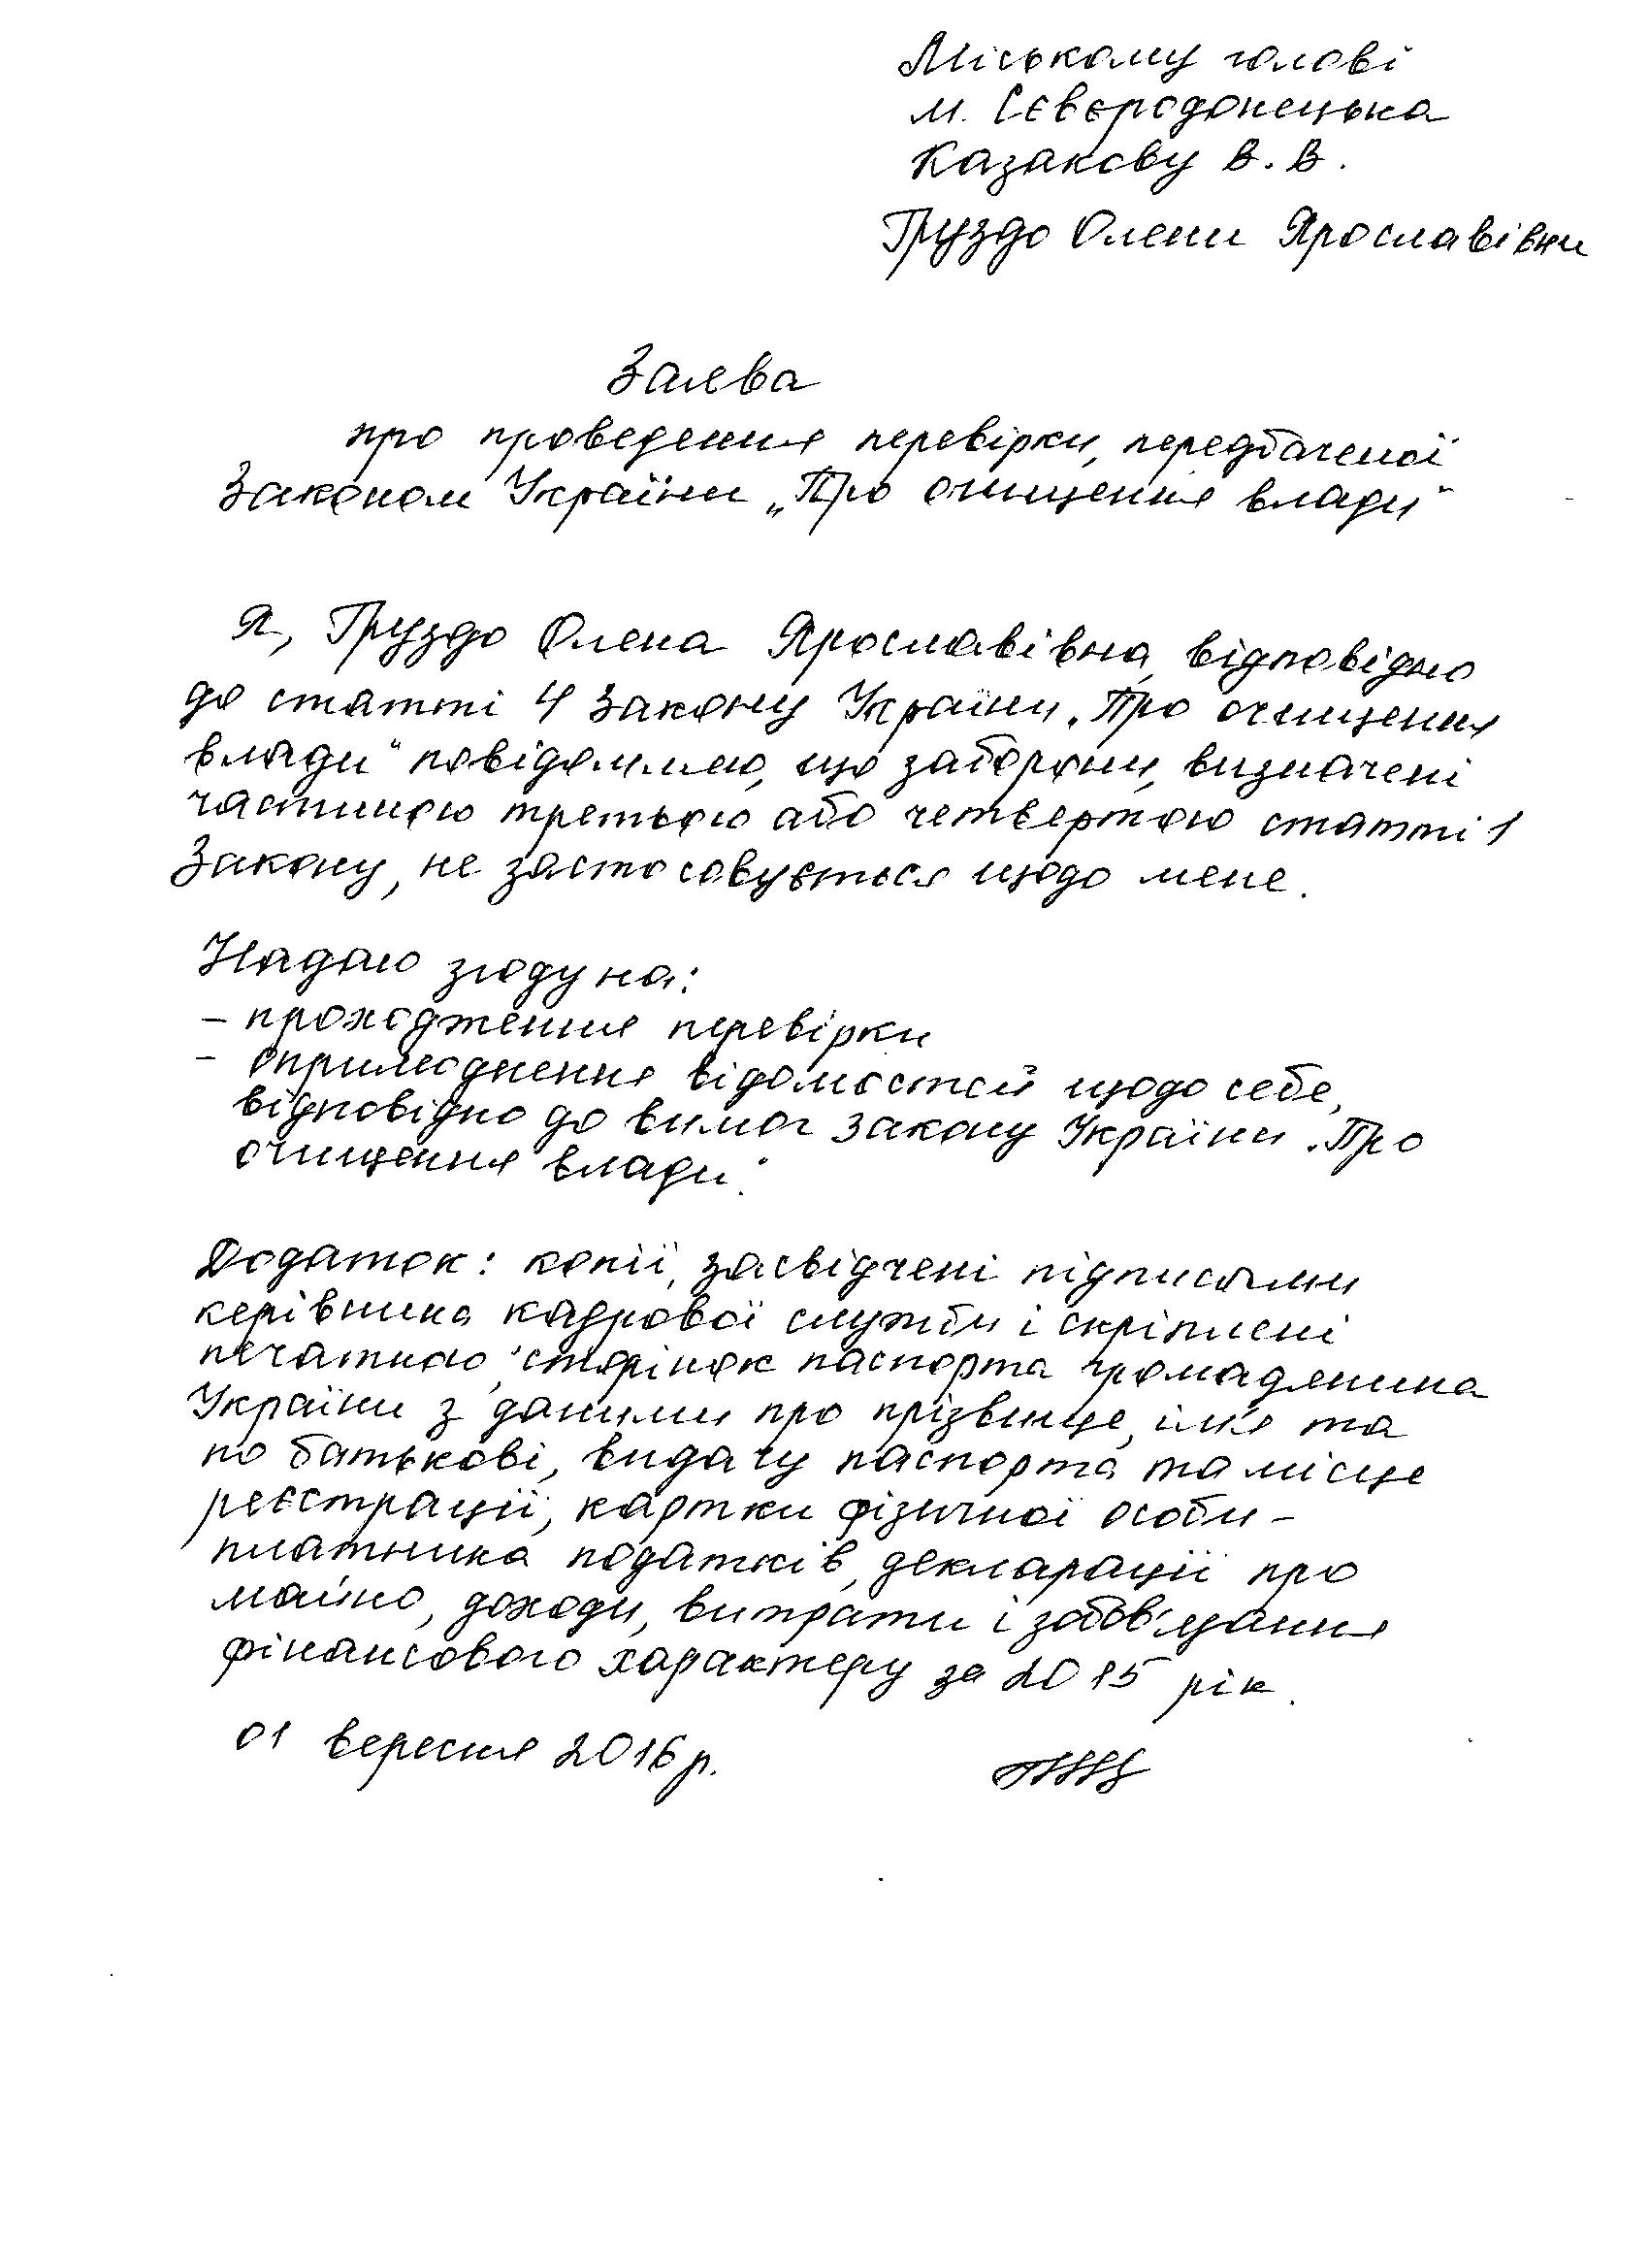 Міському голові
м. Сєвєродонецька
Казакову В. В.
Груздо Олени Ярославівни
Заява
про проведення перевірки, передбаченої
Законом України „Про очищення влади"
Я, Груздо Олена Ярославівна, відповідно
до статті 4 Закону України „Про очищення
влади" повідомляю, що заборони, визначені
частиною третьою або четвертою статті 1
Закону, не застосовується щодо мене.
Надаю згоду на:
- проходження перевірки
- оприлюднення відомостей щодо себе,
відповідно до вимог Закону України „Про
очищення влади".
Додаток: копії, засвідчені підписами
керівника кадрової служби і скріплені
печаткою, сторінок паспорта громадянина
України з даними про прізвище, ім'я та
по батькові, видачу паспорта та місце
реєстрації, картки фізичної особи -
платника податків, декларації про
майно, доходи, витрати і зобов'язання
фінансового характеру за 2015 рік.
01 вересня 2016 р.